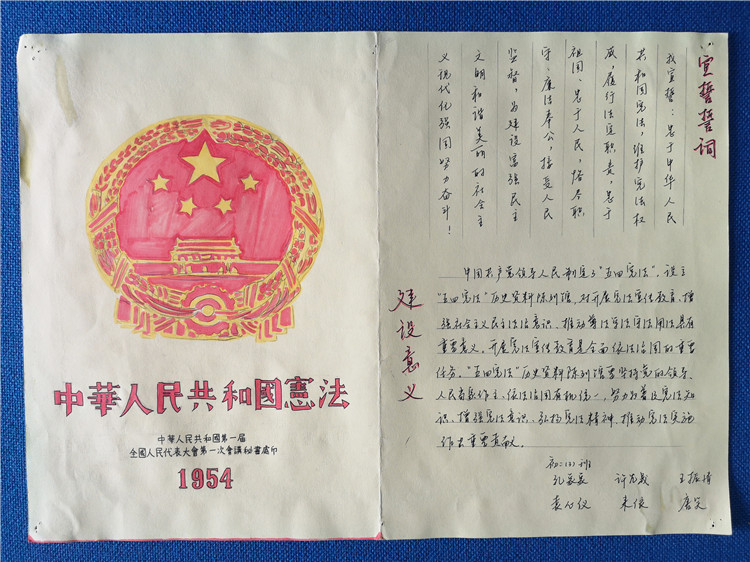 中華人民共和國憲法
中華人民共和國第一届
全國人民代表大會第一次會議秘書處印
1954
宣誓誓词
我宣誓：忠于中华人民
共和国宪法，维护宪法权
威，履行法定职责，忠于
祖国、忠于人民，恪尽职
守、廉洁奉公，接受人民
监督，为建设富强民主
文明和谐美丽的社会主
义现代化强国努力奋斗！
建设意义
中国共产党领导人民制定了“五四宪法”。设立
“五四宪法”历史资料陈列馆，对开展宪法宣传教育，增
强社会主义民主法治意识、推动尊法守法用法具有
重要意义。开展宪法宣传教育是全面依法治国的重要
任务。“五四宪法”历史资料陈列馆要坚持党的领导、
人民当家作主、依法治国有机统一，努力为普及宪法知
识、增强宪法意识、弘扬宪法精神、推动宪法实施
作出重要贡献。
初二(3)班
王振
袁心仪